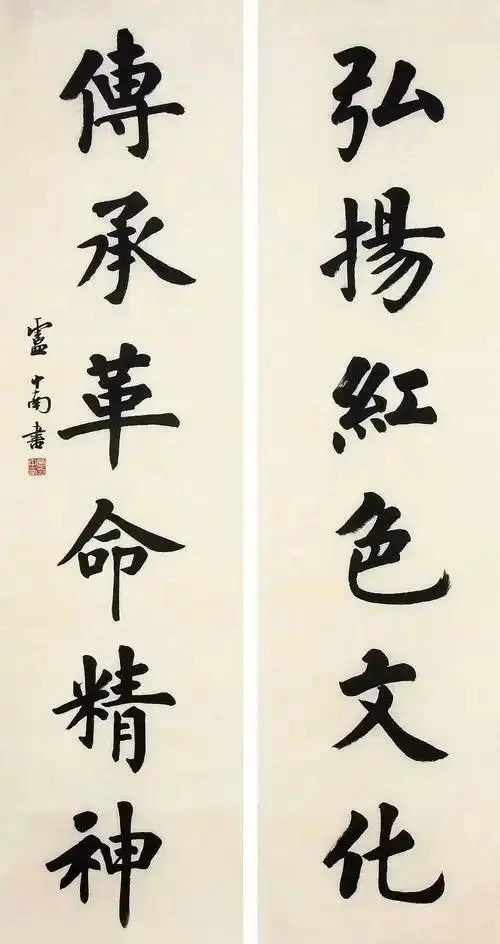 弘揚紅色文化
傳承革命精神
盧中南書